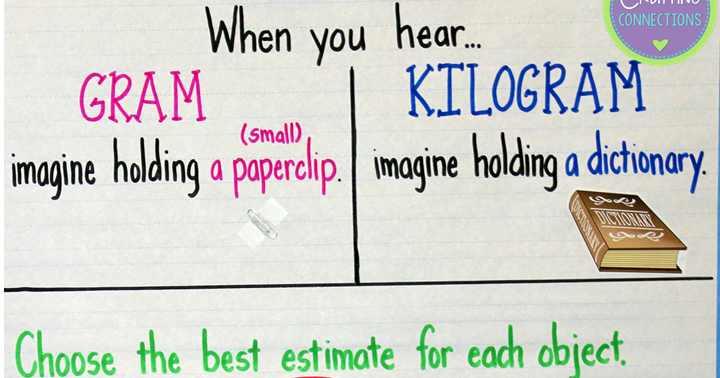 Crafting
CONNECTIONS
When you hear...
GRAM
(small)
imagine holding a paperclip.
KILOGRAM
imagine holding a dictionary.
DICTIONARY
DICTIONARY
Choose the best estimate for each object.